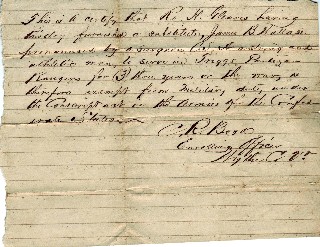 This is to certify that Ro. H. Graves having
furnished a substitute, James B. Wallace
pronounced by a surgeon a and
athletic man, to serve in Partizan
Rangers for (3) three years or the war, is
therefore exempt from Military duty under
the Conscript act in the Armies of the Confed-
erate States
C. R. Boyd
Enrolling Officer
Wythe Co. Va.